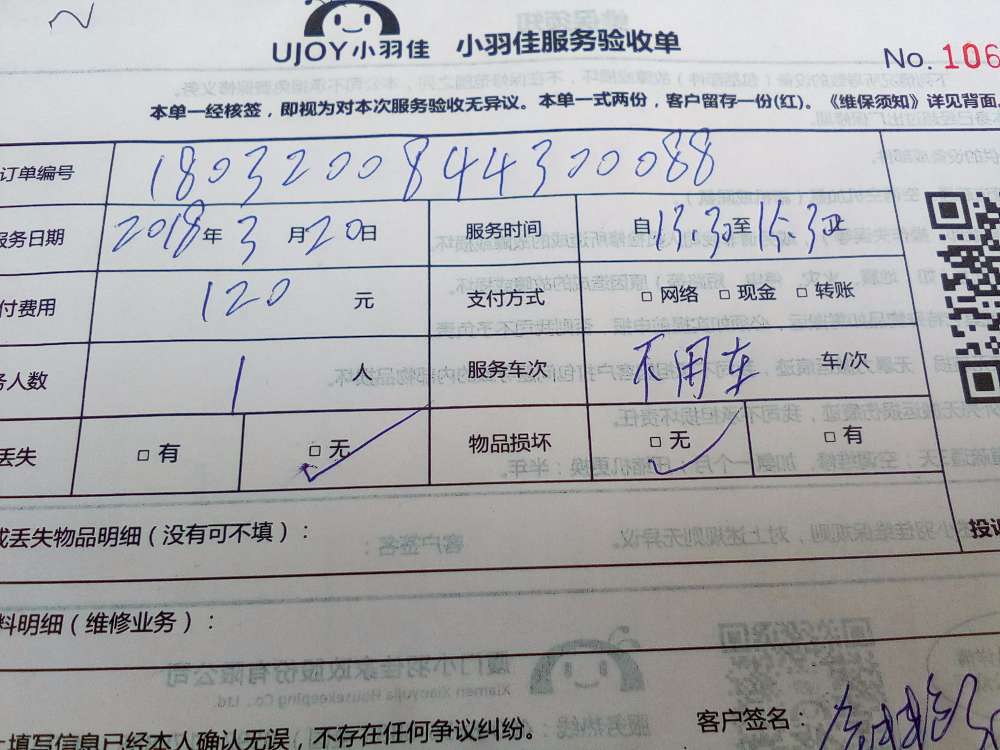 UJOY小羽佳 小羽佳服务验收单
No. 106
本单一经核签，即视为对本次服务验收无异议。本单一式两份，客户留存一份(红)。《维保须知》详见背面。
订单编号 18032008444300088
服务日期 2018年3月20日 服务时间 自13:30至15:30
付费用 120 元 支付方式 □ 网络 □ 现金 □ 转账
务人数 1 人 服务车次 不用车 车/次
丢失 □ 有 □ 无 物品损坏 □ 无 □ 有
或丢失物品明细（没有可不填）：
投诉
料明细（维修业务）：
客户签名：
上填写信息已经本人确认无误，不存在任何争议纠纷。